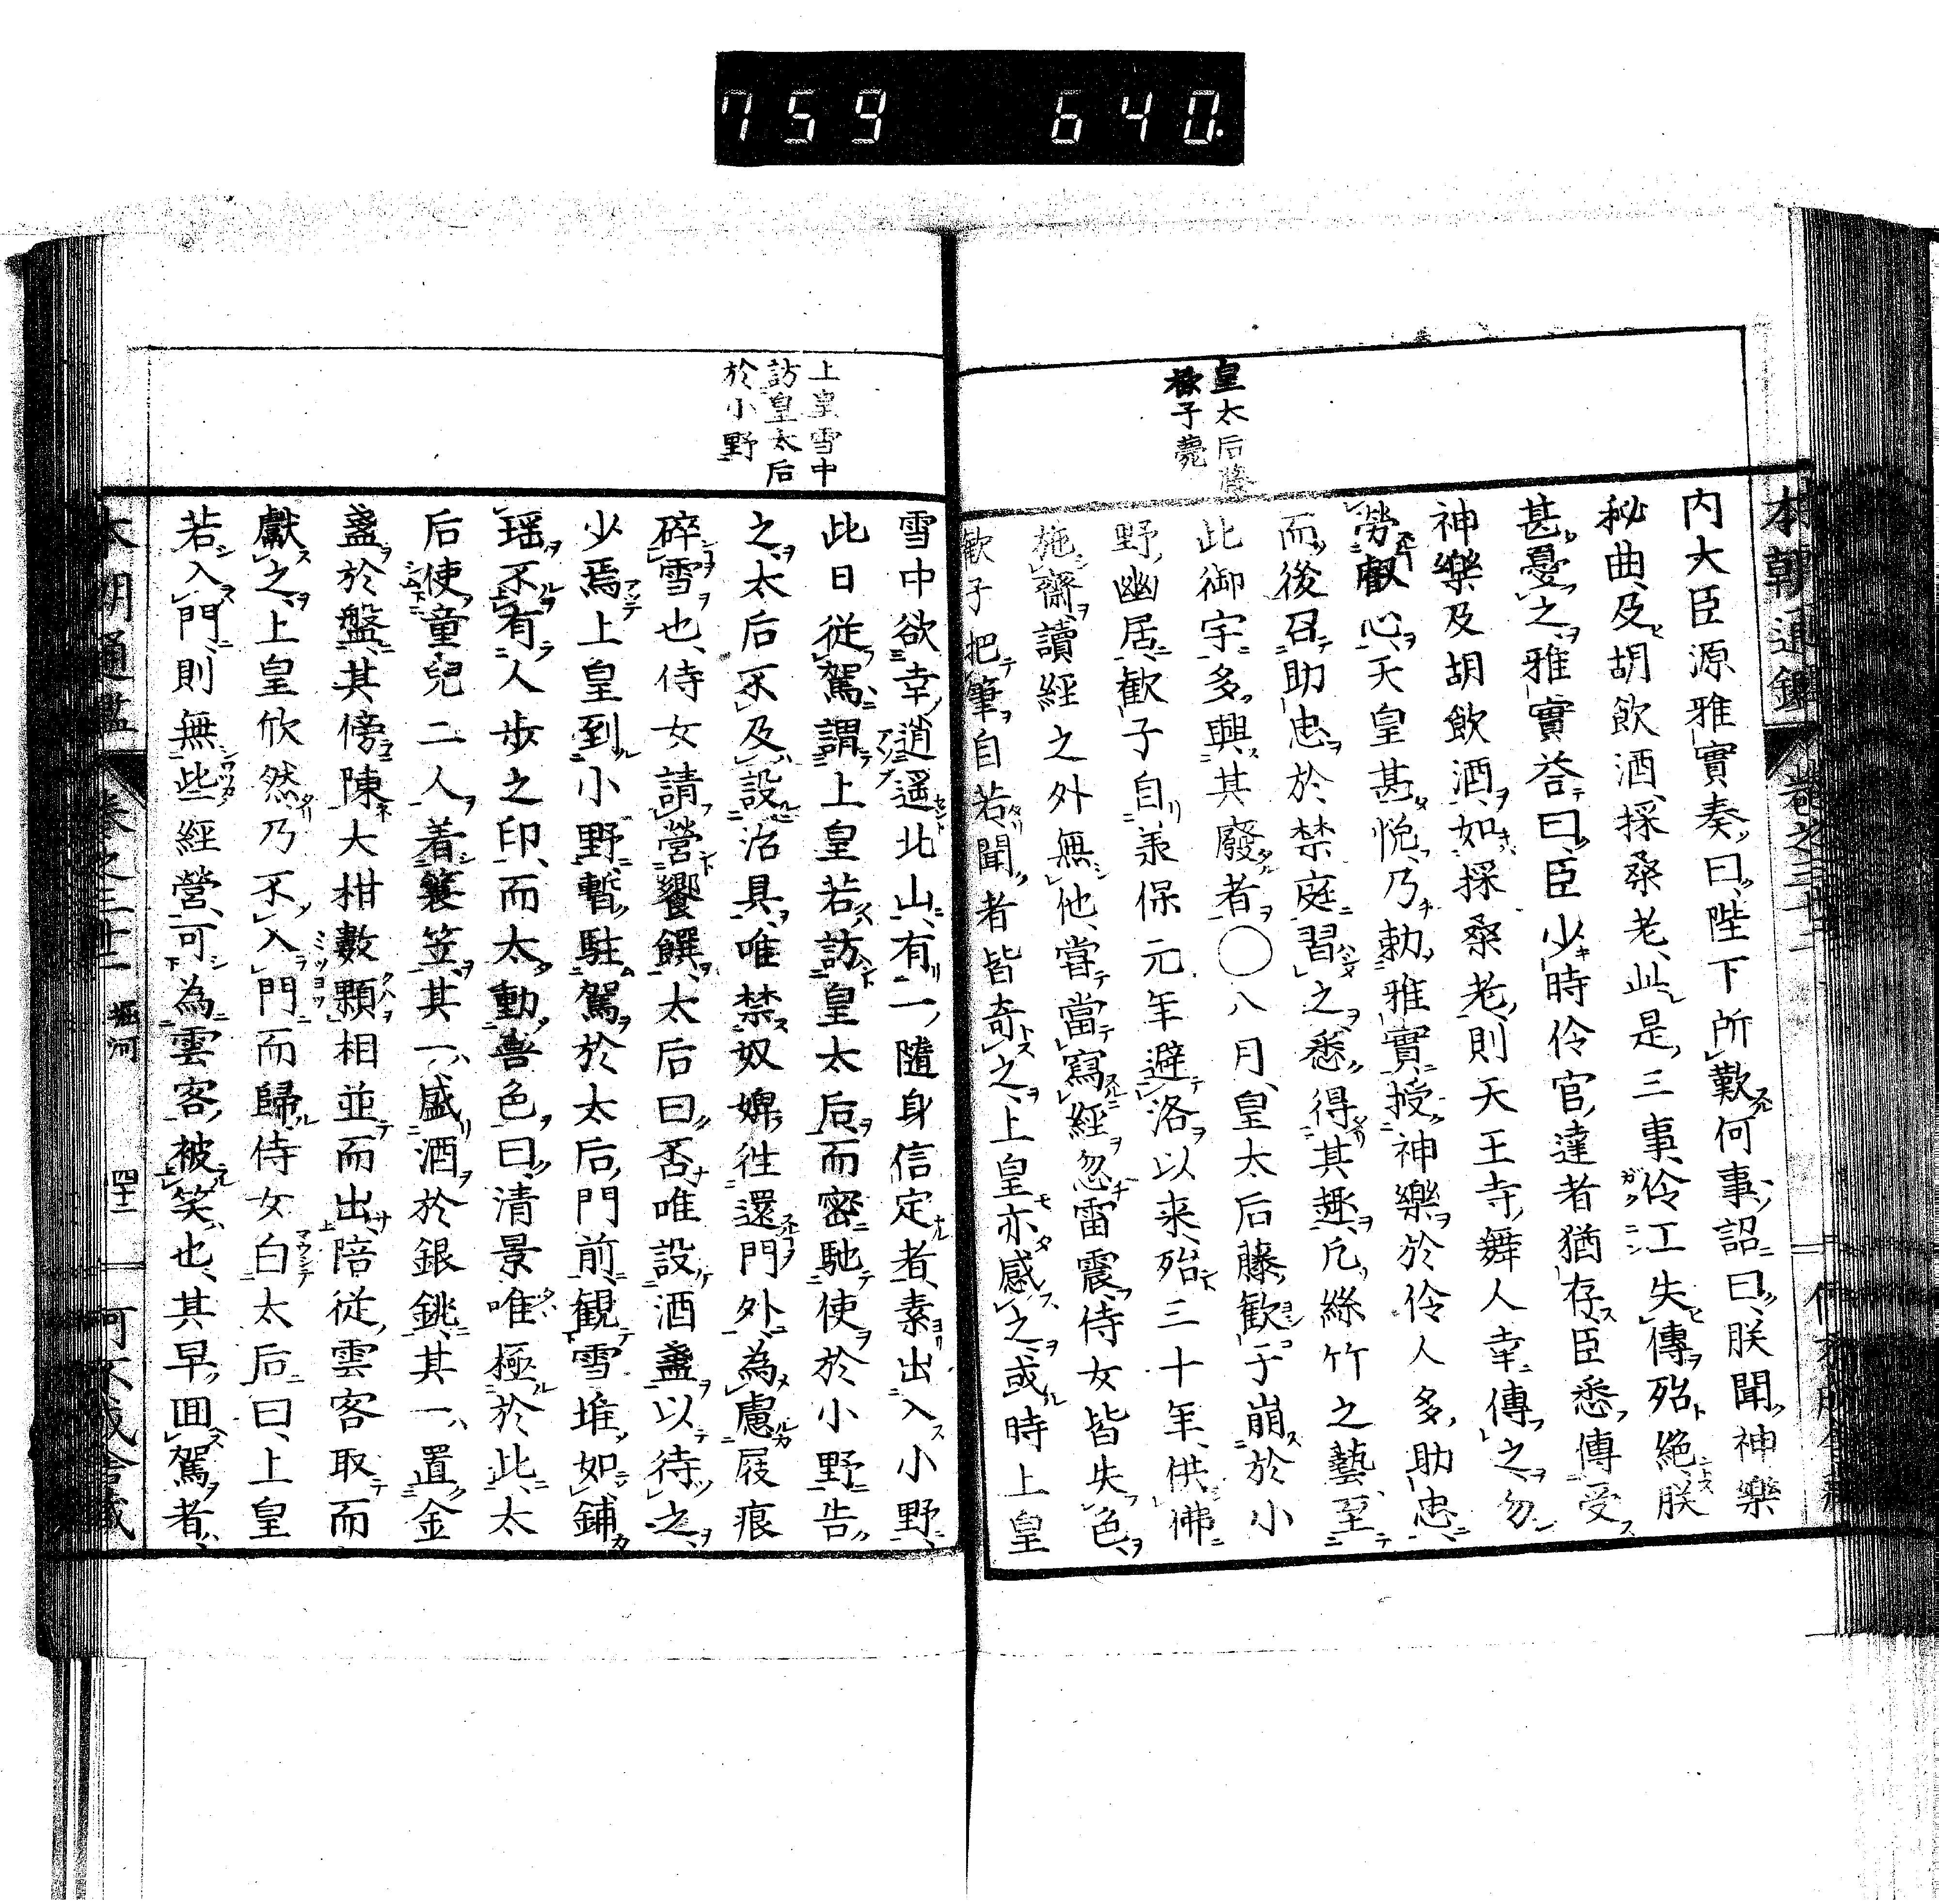 759 640.
皇太后藤
歓子薨
内大臣源雅實奏曰陛下所歎何事詔曰朕聞神樂
秘曲及胡飲酒採桑老此是三事伶工失傳殆絶朕
甚憂之雅實荅曰臣少時伶官達者猶存臣悉傳受
神樂及胡飲酒如採桑老則天王寺舞人幸傳之勿
勞叡心天皇甚悦乃勅雅實授神樂於伶人多助忠
而後召助忠於禁庭習之悉得其趣凡絲竹之藝至
此御宇多興其廢者〇八月皇太后藤歓子崩於小
野幽居歓子自兼保元年避洛以来殆三十年供佛
施齋讀經之外無他當當寫經忽雷震侍女皆失色
歓子把筆自若聞者皆奇之上皇亦感之或時上皇
上皇雪中
訪皇太后
於小野
雪中欲幸逍遥北山有一隨身信定者素出入小野
此日従駕謂上皇若訪皇太后而密馳使於小野告
之太后不及設治具唯禁奴婢往還門外為慮屐痕
碎雪也侍女請營饗饌太后曰否唯設酒盞以待之
少焉上皇到小野暫駐駕於太后門前觀雪堆如鋪
瑶不有人歩之印而太動喜色曰清景唯極於此太
后使童兒二人着簑笠其一盛酒於銀銚其一置金
盞於盤其傍陳大柑數顆相並而出陪従雲客取而
獻之上皇欣然乃不入門而歸侍女白太后曰上皇
若入門則無些經營可為雲客被笑也其早囬駕者
本朝通鑑
堀河
四十二